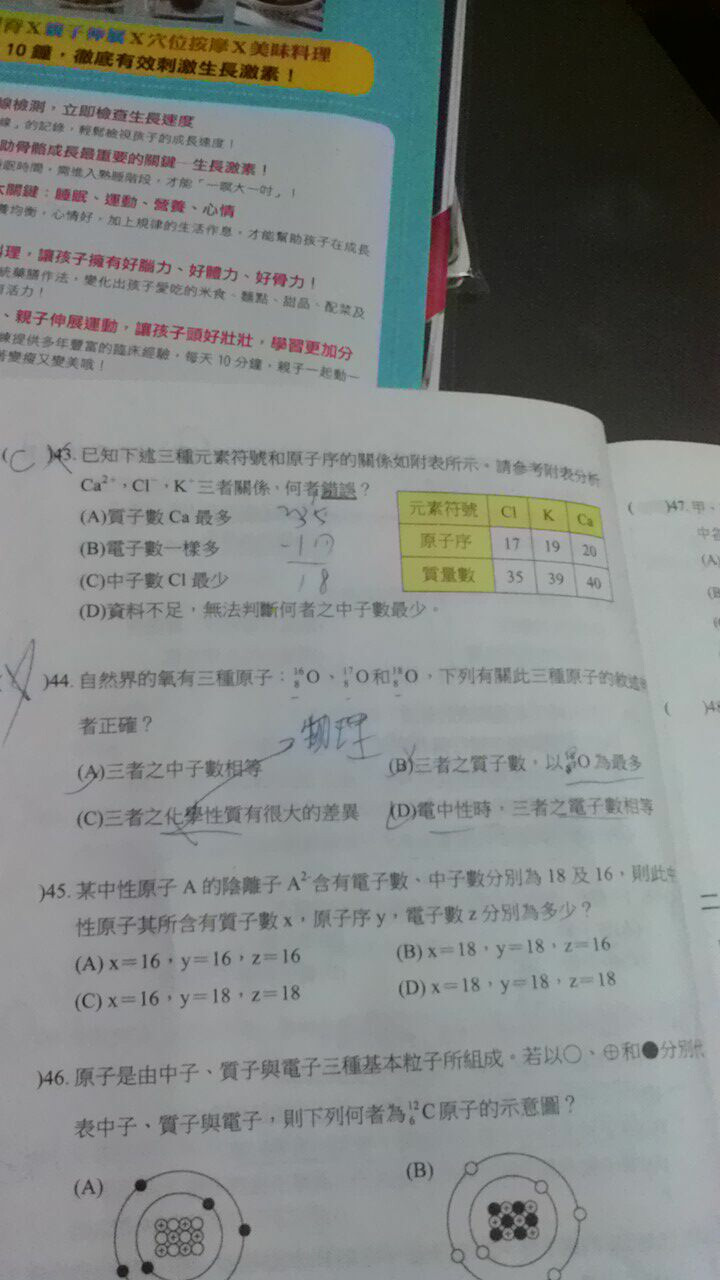 X親子伸展X穴位按摩X美味料理
10鐘，徹底有效刺激生長激素！
線檢測，立即檢查生長速度
線」的記錄，輕鬆檢視孩子的成長速度！
助骨骼成長最重要的關鍵─生長激素！
眠時間，需進入熟睡階段，才能「一暝大一吋」！
大關鍵：睡眠、運動、營養、心情
養均衡，心情好，加上規律的生活作息，才能幫助孩子在成長
料理，讓孩子擁有好腦力、好體力、好骨力！
統藥膳作法，變化出孩子愛吃的米食、麵點、甜品、配菜及
活力！
、親子伸展運動，讓孩子頭好壯壯，學習更加分
提供多年豐富的臨床經驗，每天10分鐘，親子一起動一
變瘦又變美哦！
(C )43. 已知下述三種元素符號和原子序的關係如附表所示。請參考附表分析
Ca²⁺，Cl⁻，K⁺三者關係，何者錯誤？
(A)質子數 Ca 最多
(B)電子數一樣多
(C)中子數 Cl 最少
(D)資料不足，無法判斷何者之中子數最少。
35
-17
18
元素符號 Cl K Ca
原子序 17 19 20
質量數 35 39 40
)44. 自然界的氧有三種原子：¹⁶₈O、¹⁷₈O和¹⁸₈O，下列有關此三種原子的敘述
者正確？
物理
(A)三者之中子數相等
(B)三者之質子數，以¹⁸₈O為最多
(C)三者之化學性質有很大的差異
(D)電中性時，三者之電子數相等
)45. 某中性原子 A 的陰離子 A²⁻含有電子數、中子數分別為 18 及 16，則此中
性原子其所含有質子數 x，原子序 y，電子數 z 分別為多少？
(A) x＝16，y＝16，z＝16
(B) x＝18，y＝18，z＝16
(C) x＝16，y＝18，z＝18
(D) x＝18，y＝18，z＝18
)46. 原子是由中子、質子與電子三種基本粒子所組成。若以○、⊕和●分別代
表中子、質子與電子，則下列何者為¹²₆C原子的示意圖？
(A)
(B)
( )47. 甲、
中
(A)
(B
(
( )48
二